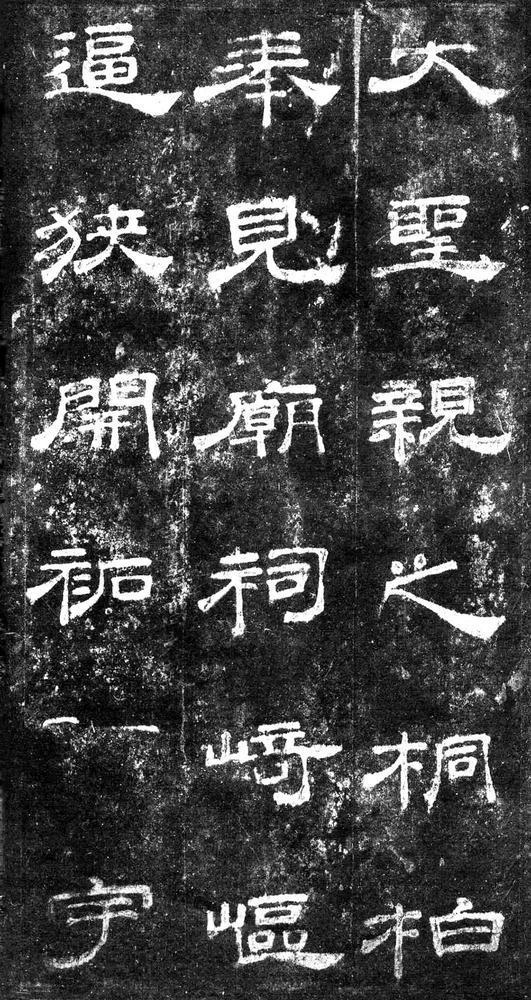 大聖親之桐柏
奉見廟祠崎嶇
逼狹開祏一宇